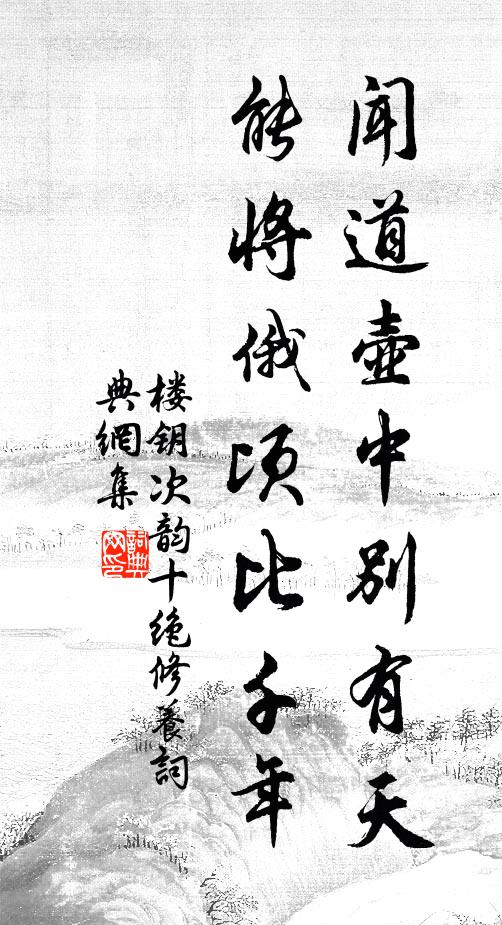 闻道壶中别有天
能将俄顷比千年
楼钥次韵十绝修养詞
典網集
詞典网印